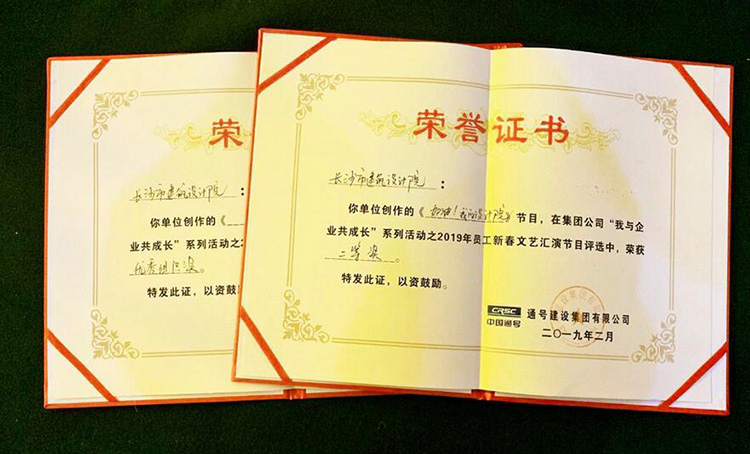 荣
长沙市建筑设计院：
你单位创作的《
业共成长”系列活动之2
优秀组织奖。
特发此证，以资鼓励
荣誉证书
长沙市建筑设计院：
你单位创作的《加油！我的设计院》节目，在集团公司“我与企
业共成长”系列活动之2019年员工新春文艺汇演节目评选中，荣获
二等奖。
特发此证，以资鼓励。
CRSC
中国通号
通号建设集团有限公司
二〇一九年二月